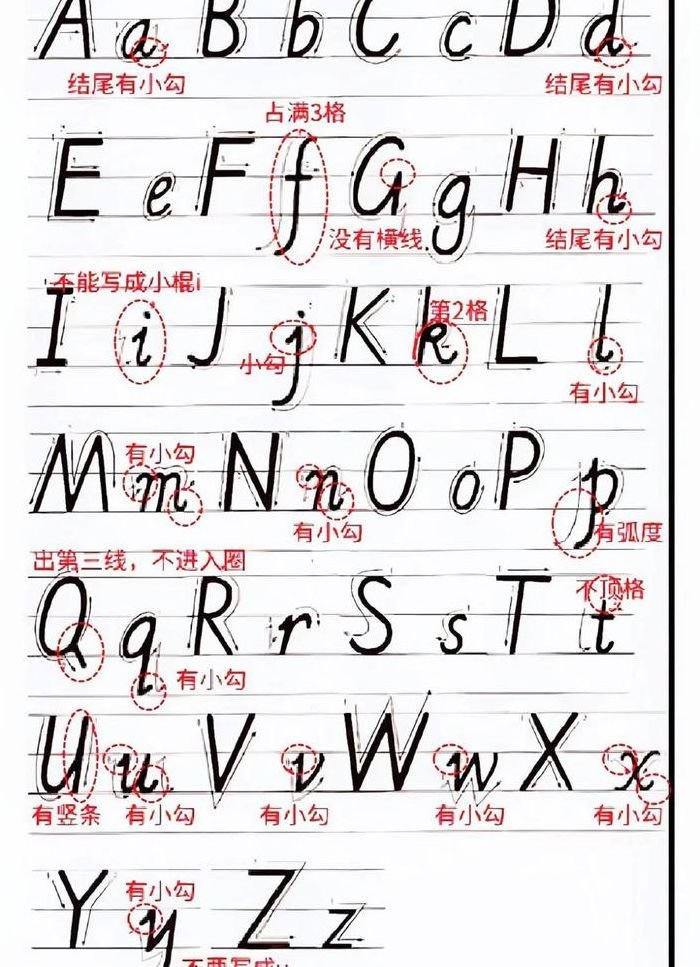 A a B b C c D d
结尾有小勾 结尾有小勾
占满3格
E e F f G g H h
没有横线 结尾有小勾
不能写成小棍i
I i J j K k L l
第2格
小勾
有小勾
有小勾
M m N n O o P p
有小勾 有弧度
出第三线，不进入圈
不顶格
Q q R r S s T t
有小勾
U u V v W w X x
有竖条 有小勾 有小勾 有小勾 有小勾
有小勾
Y y Z z
不要写成